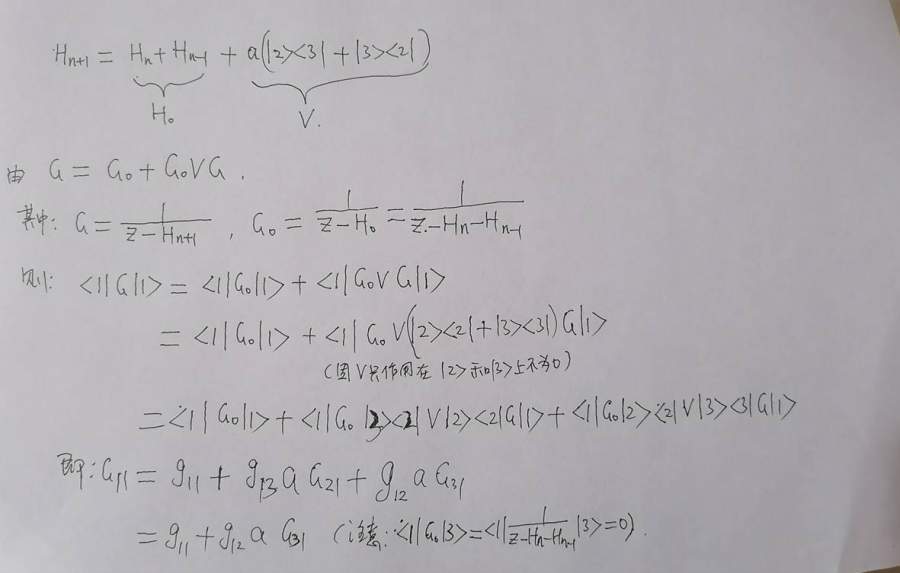 Hn+1 = Hn + Hn-1 + a(|2><3| + |3><2|)
H₀ V.
由 G = G₀ + G₀VG .
其中: G = 1/(Z-Hn+1) , G₀ = 1/(Z-H₀) = 1/(Z.-Hn-Hn-1)
则: <1|G|1> = <1|G₀|1> + <1|G₀VG|1>
= <1|G₀|1> + <1|G₀V(|2><2|+|3><3|)G|1>
(因V只作用在|2>和|3>上不为0)
= <1|G₀|1> + <1|G₀|3><2|V|2><2|G|1> + <1|G₀|2><2|V|3><3|G|1>
即: G₁₁ = g₁₁ + g₁₃ a G₂₁ + g₁₂ a G₃₁
= g₁₁ + g₁₂ a G₃₁ (注意: <1|G₀|3> = <1|1/(Z-Hn-Hn-1)|3> = 0).